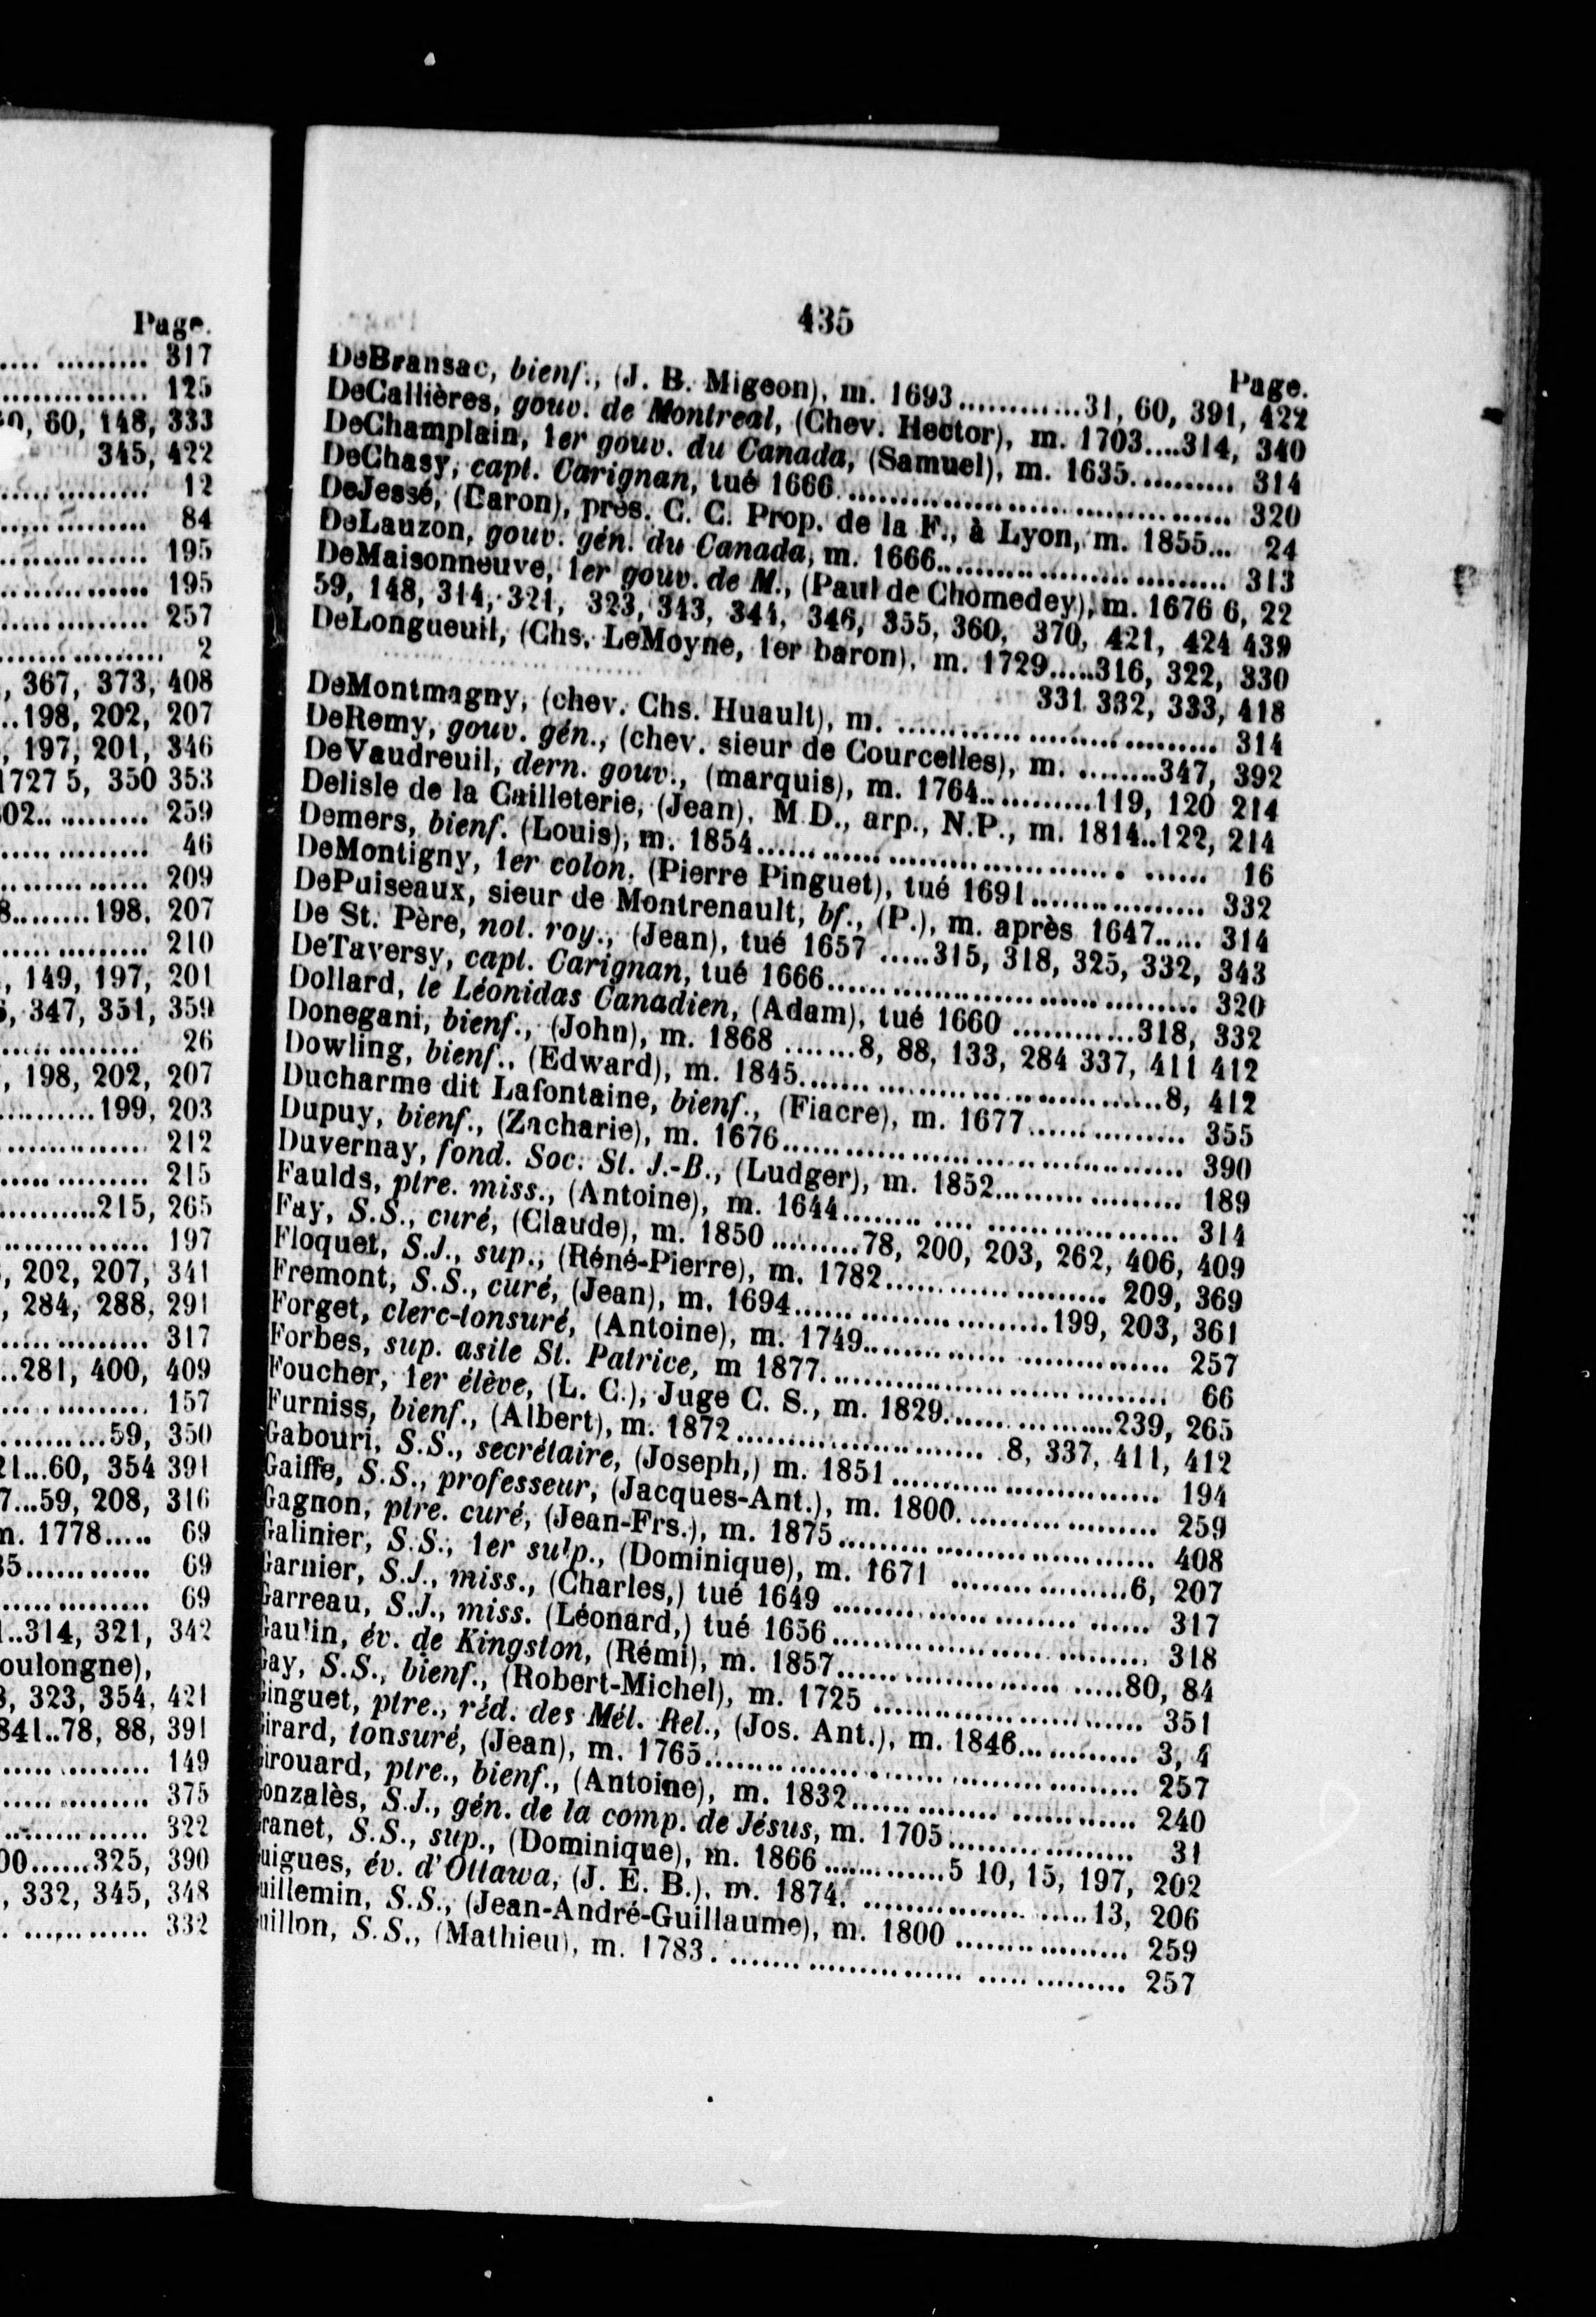 Page.
.... ......... 317
............... 125
60, 148, 333
345, 422
............... 12
............... 84
............... 195
............... 195
............... 257
................ 2
, 367, 373, 408
..198, 202, 207
, 197, 201, 346
1727 5, 350 353
02........... 259
............... 46
............... 209
8.........198, 207
............... 210
, 149, 197, 201
, 347, 351, 359
............... 26
, 198, 202, 207
..........199, 203
............... 212
............... 215
..........215, 265
............... 197
, 202, 207, 341
, 284, 288, 291
............... 317
..281, 400, 409
............... 157
..........59, 350
21...60, 354 391
7...59, 208, 316
m. 1778..... 69
35............ 69
............... 69
..314, 321, 342
oulongne),
, 323, 354, 421
841..78, 88, 391
............... 149
............... 375
............... 322
00......325, 390
, 332, 345, 348
............... 332
435
Page.
DeBransac, bienf., (J. B. Migeon), m. 1693.............31, 60, 391, 422
DeCallières, gouv. de Montreal, (Chev. Hector), m. 1703....314, 340
DeChamplain, 1er gouv. du Canada, (Samuel), m. 1635........... 314
DeChasy, capt. Carignan, tué 1666........................................ 320
DeJessé, (Baron), près. C. C. Prop. de la F., à Lyon, m. 1855... 24
DeLauzon, gouv. gén. du Canada, m. 1666.............................. 313
DeMaisonneuve, 1er gouv. de M., (Paul de Chomedey), m. 1676 6, 22
59, 148, 314, 321, 323, 343, 344, 346, 355, 360, 370, 421, 424 439
DeLongueuil, (Chs. LeMoyne, 1er baron), m. 1729.....316, 322, 330
331 332, 333, 418
DeMontmagny, (chev. Chs. Huault), m. ................................ 314
DeRemy, gouv. gén., (chev. sieur de Courcelles), m. .........347, 392
DeVaudreuil, dern. gouv., (marquis), m. 1764............119, 120 214
Delisle de la Cailleterie, (Jean), M.D., arp., N.P., m. 1814..122, 214
Demers, bienf. (Louis), m. 1854.......................................... 16
DeMontigny, 1er colon, (Pierre Pinguet), tué 1691................. 332
DePuiseaux, sieur de Montrenault, bf., (P.), m. après 1647..... 314
De St. Père, not. roy., (Jean), tué 1657 .....315, 318, 325, 332, 343
DeTaversy, capt. Carignan, tué 1666..................................... 320
Dollard, le Léonidas Canadien, (Adam), tué 1660 ............318, 332
Donegani, bienf., (John), m. 1868 .......8, 88, 133, 284 337, 411 412
Dowling, bienf., (Edward), m. 1845....................................8, 412
Ducharme dit Lafontaine, bienf., (Fiacre), m. 1677............... 355
Dupuy, bienf., (Zacharie), m. 1676........................................ 390
Duvernay, fond. Soc. St. J.-B., (Ludger), m. 1852................... 189
Faulds, ptre. miss., (Antoine), m. 1644.................................. 314
Fay, S.S., curé, (Claude), m. 1850 .........78, 200, 203, 262, 406, 409
Floquet, S.J., sup., (Réné-Pierre), m. 1782....................... 209, 369
Fremont, S.S., curé, (Jean), m. 1694..........................199, 203, 361
Forget, clerc-tonsuré, (Antoine), m. 1749............................... 257
Forbes, sup. asile St. Patrice, m 1877................................... 66
Foucher, 1er élève, (L. C.), Juge C. S., m. 1829..................239, 265
Furniss, bienf., (Albert), m. 1872......................... 8, 337, 411, 412
Gabouri, S.S., secrétaire, (Joseph,) m. 1851........................... 194
Gaiffe, S.S., professeur, (Jacques-Ant.), m. 1800.................... 259
Gagnon, ptre. curé, (Jean-Frs.), m. 1875................................ 408
Galinier, S.S., 1er sulp., (Dominique), m. 1671 ..................6, 207
Garnier, S.J., miss., (Charles,) tué 1649 ................................ 317
Garreau, S.J., miss. (Léonard,) tué 1656................................ 318
Gaulin, év. de Kingston, (Rémi), m. 1857.............................80, 84
Gay, S.S., bienf., (Robert-Michel), m. 1725 ........................... 351
inguet, ptre., réd. des Mél. Rel., (Jos. Ant.), m. 1846............ 3, 4
irard, tonsuré, (Jean), m. 1765............................................ 257
irouard, ptre., bienf., (Antoine), m. 1832............................. 240
onzalès, S.J., gén. de la comp. de Jésus, m. 1705................... 31
ranet, S.S., sup., (Dominique), m. 1866 .............5 10, 15, 197, 202
uigues, év. d'Ottawa, (J. E. B.), m. 1874. .......................13, 206
uillemin, S.S., (Jean-André-Guillaume), m. 1800 ................. 259
uillon, S.S., (Mathieu), m. 1783. ........................................ 257